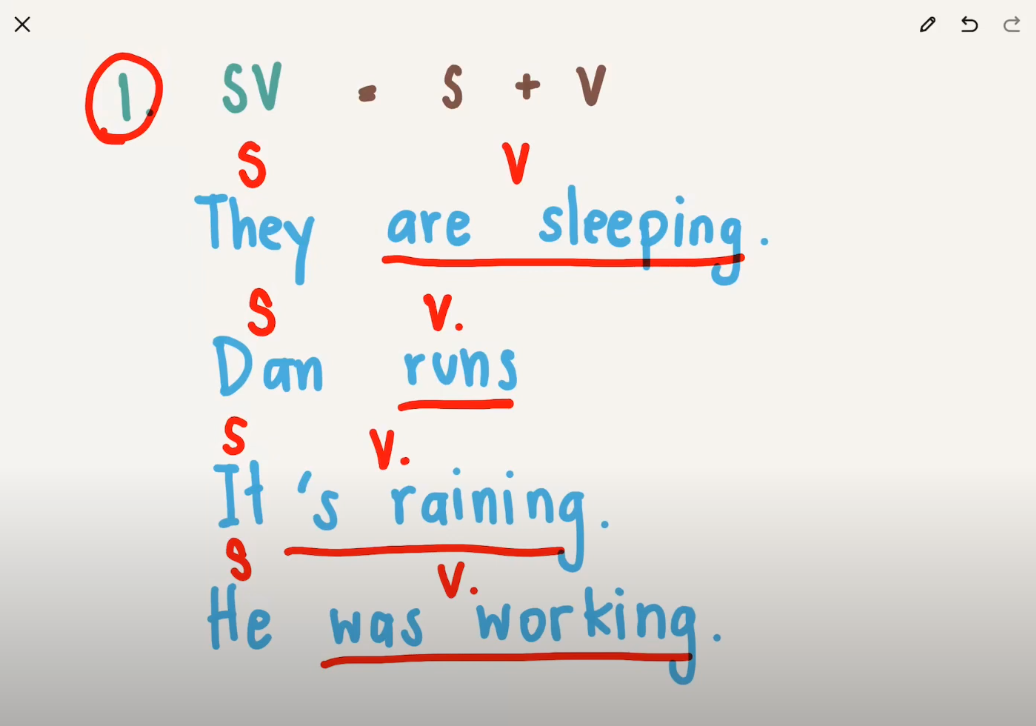 1. SV = S + V
S V
They are sleeping.
S V.
Dan runs
S V.
It's raining.
S V.
He was working.